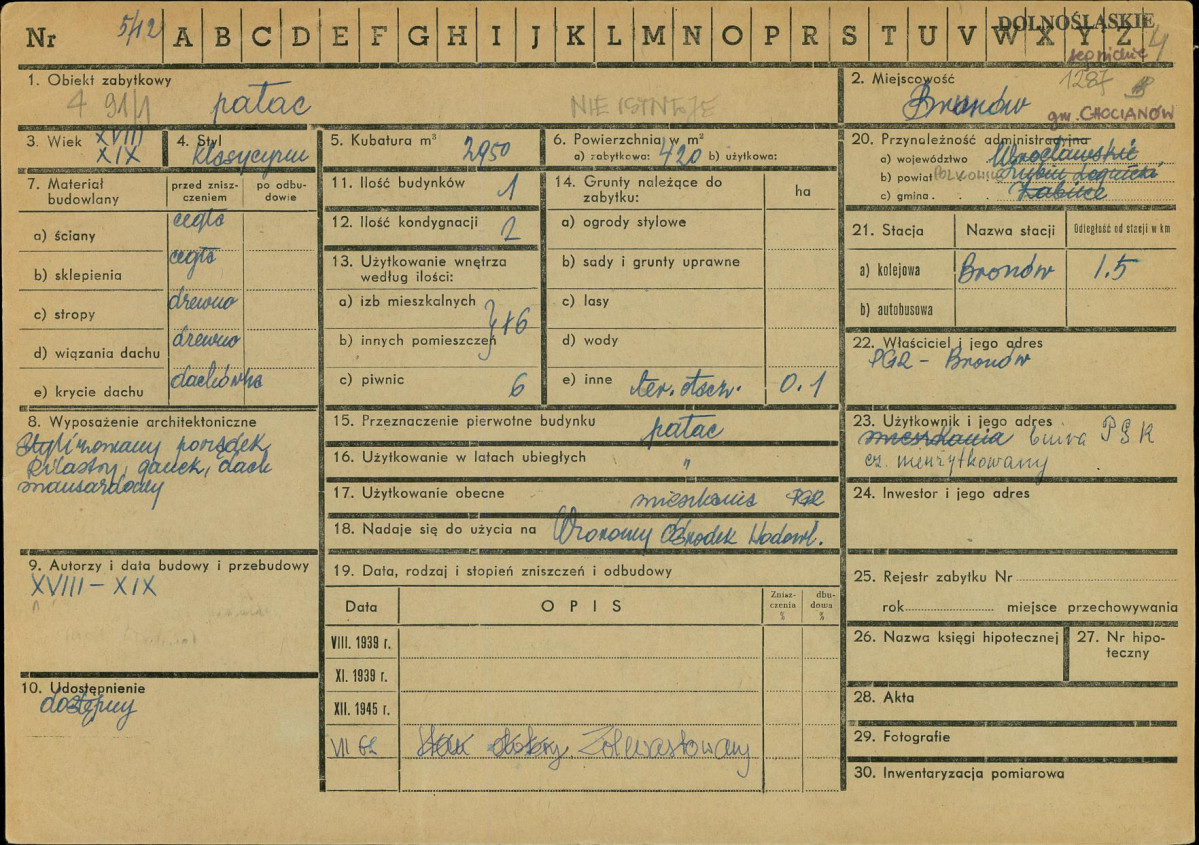 Nr 5/12 A B C D E F G H I J K L M N O P R S T U V W X Y Z 4
DOLNOŚLĄSKIE
legnickie
1. Obiekt zabytkowy
4 91/1 pałac NIE ISTNIEJE
2. Miejscowość 1287
Bronów
gm. CHOCIANÓW
3. Wiek XVIII
XIX
4. Styl
klasycyzm
5. Kubatura m³ 2950
6. Powierzchnia w m²
a) zabytkowa: 420 b) użytkowa:
7. Materiał budowlany
przed zniszczeniem
po odbudowie
a) ściany cegła
b) sklepienia cegła
c) stropy drewno
d) wiązania dachu drewno
e) krycie dachu dachówka
8. Wyposażenie architektoniczne
Stylizowany porządek
Pilastry, ganek, dach
mansardowy
9. Autorzy i data budowy i przebudowy
XVIII – XIX
10. Udostępnienie
dostępny
11. Ilość budynków 1
12. Ilość kondygnacji 2
13. Użytkowanie wnętrza według ilości:
a) izb mieszkalnych
b) innych pomieszczeń
c) piwnic 6
14. Grunty należące do zabytku:
ha
a) ogrody stylowe
b) sady i grunty uprawne
c) lasy
d) wody
e) inne ter. otacz. 0.1
15. Przeznaczenie pierwotne budynku pałac
16. Użytkowanie w latach ubiegłych "
17. Użytkowanie obecne mieszkania PGR
18. Nadaje się do użycia na Ośrodek Hodowl.
19. Data, rodzaj i stopień zniszczeń i odbudowy
Data OPIS Zniszczenia % dbudowa %
VIII. 1939 r.
XI. 1939 r.
XII. 1945 r.
VII 62 stan dobry. Zdewastowany
20. Przynależność administracyjna
a) województwo Wrocławskie
b) powiat Lubin Legnicki
c) gmina
21. Stacja Nazwa stacji Odległość od stacji w km
a) kolejowa Bronów 1.5
b) autobusowa
22. Właściciel i jego adres
PGR - Bronów
23. Użytkownik i jego adres
mieszkania biura PGR
cz. nieużytkowany
24. Inwestor i jego adres
25. Rejestr zabytku Nr
rok miejsce przechowywania
26. Nazwa księgi hipotecznej
27. Nr hipoteczny
28. Akta
29. Fotografie
30. Inwentaryzacja pomiarowa